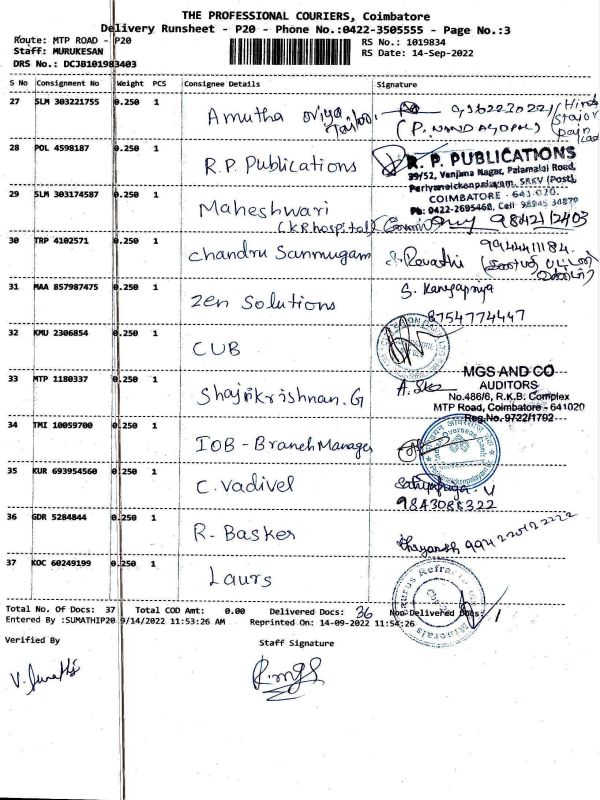 THE PROFESSIONAL COURIERS, Coimbatore
Delivery Runsheet - P20 - Phone No.:0422-3505555 - Page No.:3
Route: MTP ROAD - P20
Staff: MURUKESAN
DRS No.: DCJB101983403
RS No.: 1019834
RS Date: 14-Sep-2022
S No Consignment No Weight PCS Consignee Details Signature
27 SLM 303221755 0.250 1 Amutha oriya Tailor.
(P. NANDAGOPAL)
28 POL 4598187 0.250 1 R.P. Publications
R. P. PUBLICATIONS
39/52, Vanjana Nagar, Palamalai Road,
Periyanaickenpalayam, SRKV (Post),
COIMBATORE - 641 020.
Ph: 0422-2695468, Cell: 98945 34879
29 SLM 303174587 0.250 1 Maheshwari
(KRhospital) 9842112403
30 TRP 4102571 0.250 1 chandru Sanmugam
S. Revathi 9944411184.
31 MAA 857987475 0.250 1 Zen Solutions
S. Kangapriya
8754774447
32 KMU 2306854 0.250 1 CUB
33 MTP 1180337 0.250 1 Shajikrishnan.G
MGS AND CO
AUDITORS
No.486/6, R.K.B. Complex
MTP Road, Coimbatore - 641020
Reg.No. 9722/1792
34 TMI 10059700 0.250 1 IOB - Branch Manager
35 KUR 693954560 0.250 1 C. Vadivel
9843088322
36 GDR 5284844 0.250 1 R. Basker
37 KOC 60249199 0.250 1 Laurs
Laurus Refra
Minerals
Total No. Of Docs: 37 Total COD Amt: 0.00 Delivered Docs: 36 Non-Delivered Docs: 1
Entered By :SUMATHIP20 9/14/2022 11:53:26 AM Reprinted On: 14-09-2022 11:54:26
Verified By Staff Signature
V. Sumathi
R.mgS